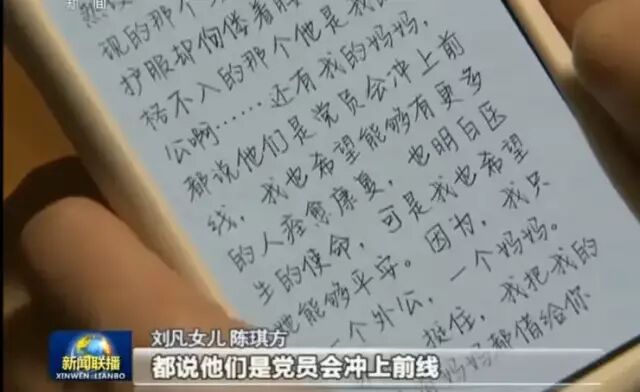 新闻
现的那个
护服却佝偻着
格不入的那个他是我
公啊……还有我的妈妈,
都说他们是党员会冲上前
线,我也希望能够有更多
的人痊愈康复,也明白医
生的使命,可是我也希望
她能够平安。因为,我只
一个外公,一个妈妈。
挺住,我把我的
妈妈都借给你
刘凡女儿 陈琪方
新闻联播
XINWEN LIANBO
都说他们是党员会冲上前线